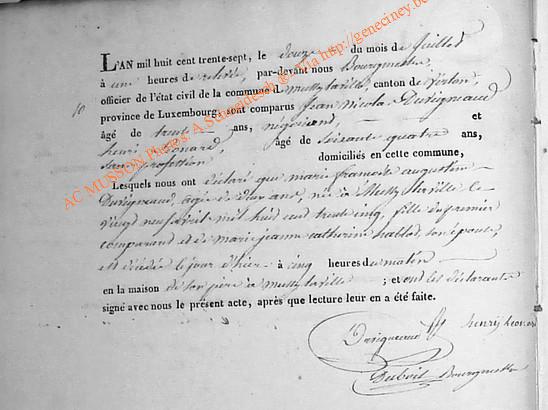 L'AN mil huit cent trente-sept, le douze du mois de Juillet
à une heures de relevée, par-devant nous Bourgmestre,
officier de l'état civil de la commune d mussy laville, canton de Virton,
province de Luxembourg, sont comparus Jean Nicolas Durigneaud
10
âgé de trente ans, négociant, et
henri Leonard, âgé de soixante quatre ans,
sans profession domiciliés en cette commune,
Lesquels nous ont déclaré que marie françoise augustine
Durigneaud, âgée de deux ans, née à Mussy laville le
vingt neuf avril mil huit cent trente cinq, fille du premier
comparant et de marie jeanne catherine son épouse,
est décédée le jour d'hier à cinq heures du matin
en la maison de son père à mussy laville ; et ont les déclarants
signé avec nous le présent acte, après que lecture leur en a été faite.
Durigneaud henry leonard
Dubois Bourgmestre
AC MUSSON Photos: A.Schneidesch @ Via http://geneciney.be